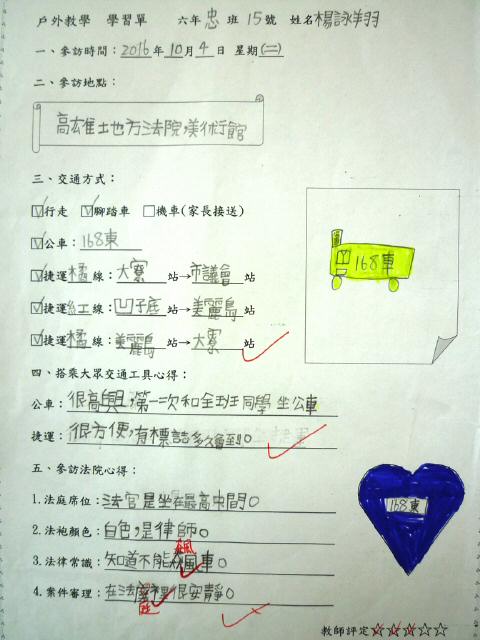 戶外教學 學習單 六年忠班15號 姓名楊詠羽
一、參訪時間：2016年10月4日 星期(二)
二、參訪地點：
高雄土地方法院，美術館
三、交通方式：
行走 腳踏車 機車(家長接送)
公車：168東
捷運橘線：大寮站→市議會站
捷運紅線：凹子底站→美麗島站
捷運橘線：美麗島站→大寮站
168車
四、搭乘大眾交通工具心得：
公車：很高興，第一次和全班同學坐公車
捷運：很方便，有標誌多久會到。
五、參訪法院心得：
1.法庭席位：法官是坐在最高中間。
2.法袍顏色：白色，是律師。
3.法律常識：知道不能飆車。
4.案件審理：在法庭裡很安靜。
168東
教師評定☆☆☆☆☆